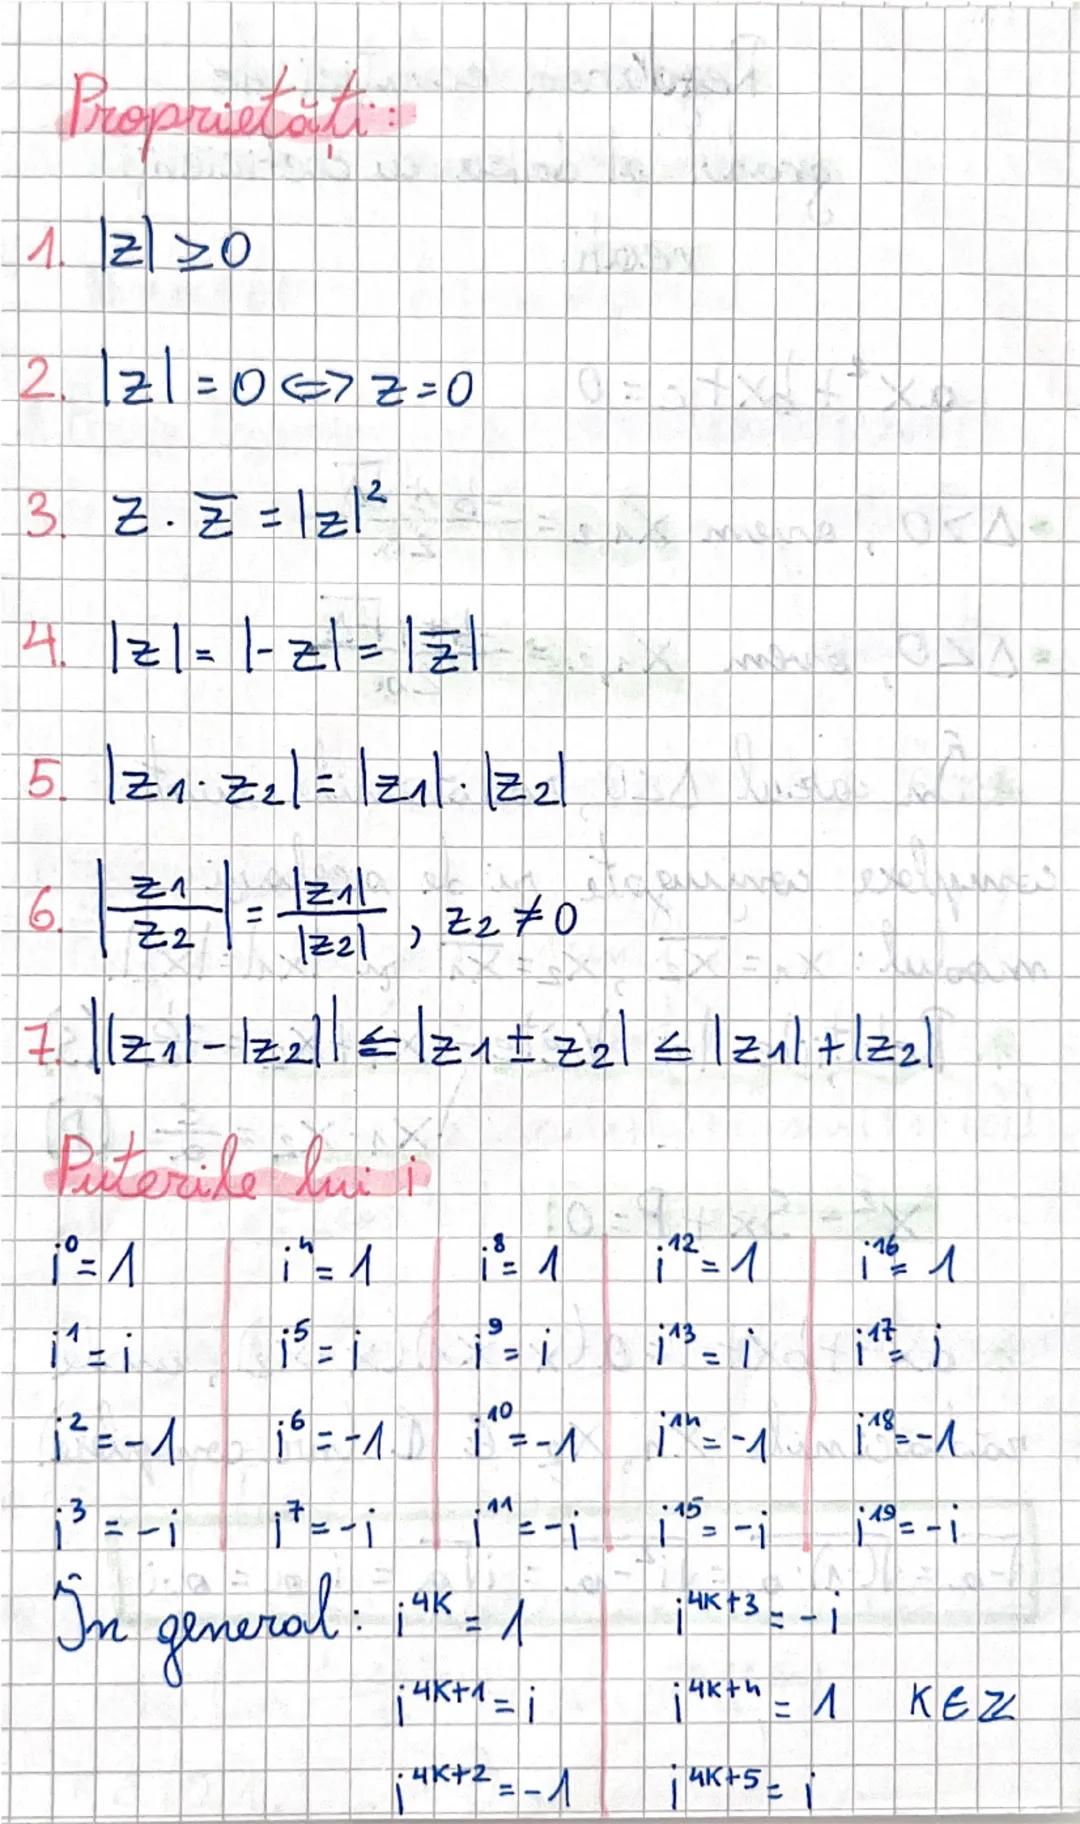 Proprietăți:
1. |z| ≥ 0
2. |z| = 0 <=> z = 0
3. z · z̅ = |z|²
4. |z| = |-z| = |z̅|
5. |z1 · z2| = |z1| · |z2|
6. |z1/z2| = |z1|/|z2| , z2 ≠ 0
7. ||z1| - |z2|| ≤ |z1 ± z2| ≤ |z1| + |z2|
Puterile lui i
i⁰ = 1 i⁴ = 1 i⁸ = 1 i¹² = 1 i¹⁶ = 1
i¹ = i i⁵ = i i⁹ = i i¹³ = i i¹⁷ = i
i² = -1 i⁶ = -1 i¹⁰ = -1 i¹⁴ = -1 i¹⁸ = -1
i³ = -i i⁷ = -i i¹¹ = -i i¹⁵ = -i i¹⁹ = -i
În general: i^4K = 1 i^4K+3 = -i
i^4K+1 = i i^4K+4 = 1 K ∈ ℤ
i^4K+2 = -1 i^4K+5 = i